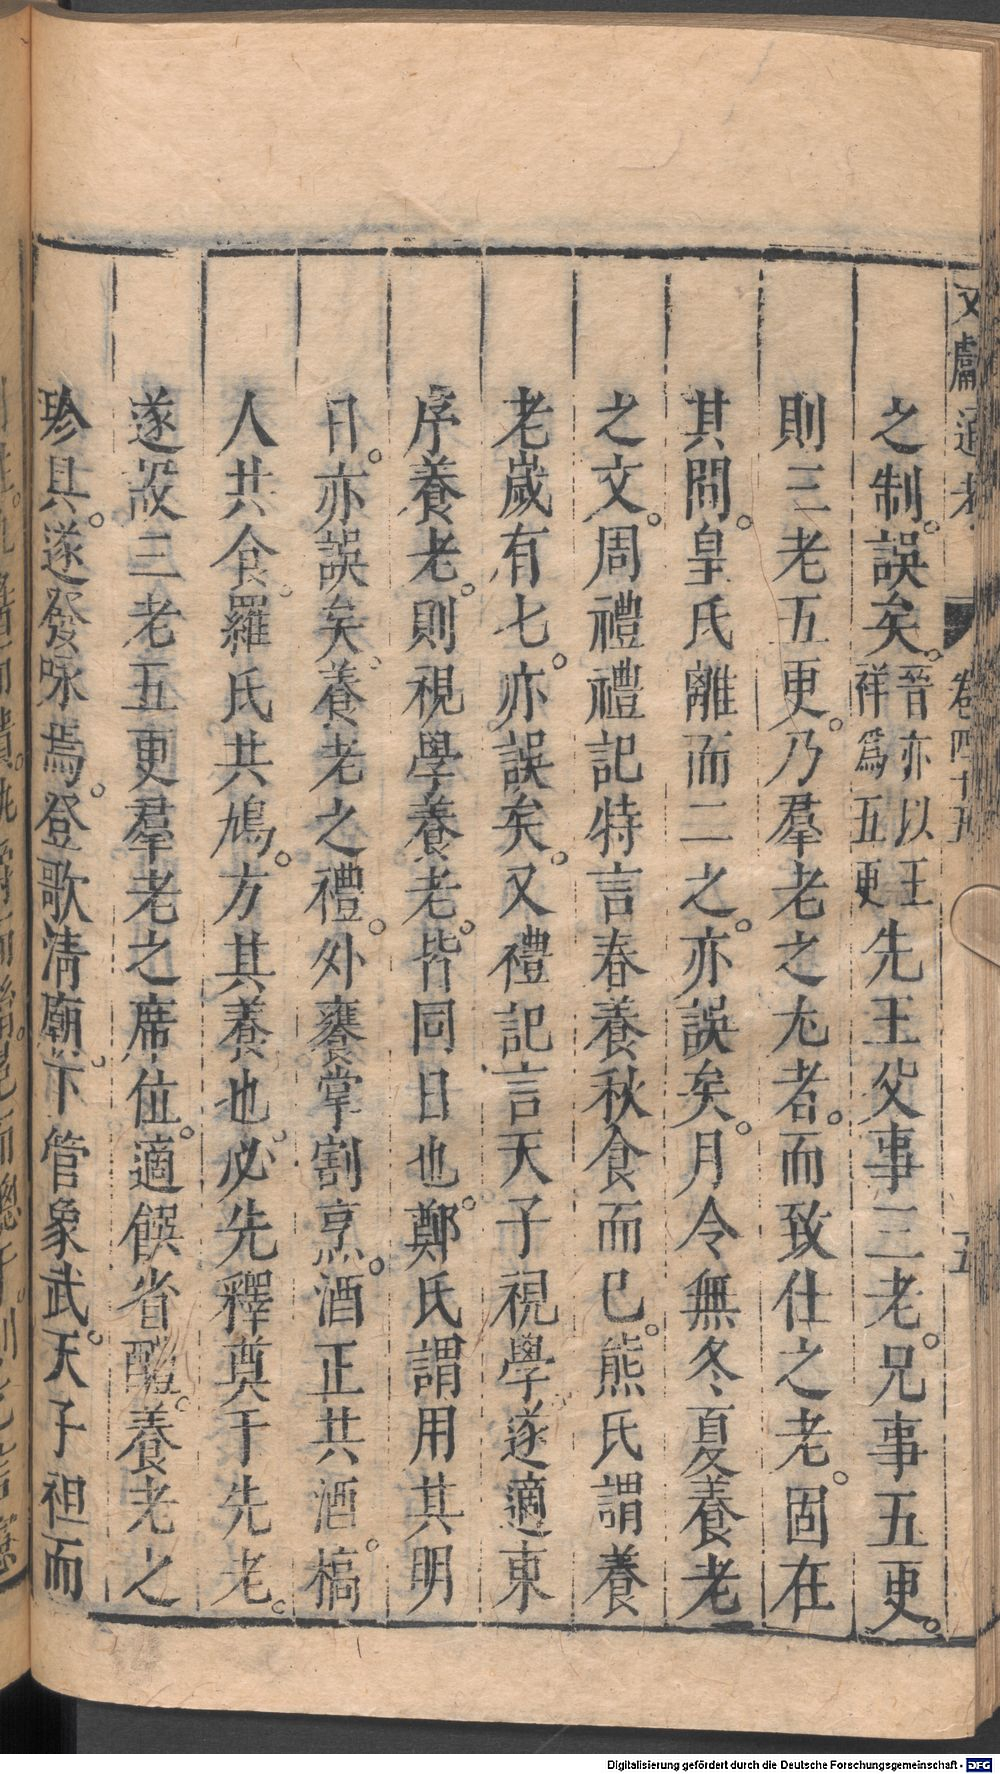 文獻通考 卷四十五 十五
之制。誤矣。晉亦以王祥爲五更先王父事三老。兄事五更。
則三老五更。乃羣老之尤者。而致仕之老。固在
其間。皇氏離而二之。亦誤矣。月令無冬夏養老
之文。周禮禮記特言春養秋食而已。熊氏謂養
老歲有七。亦誤矣。又禮記言天子視學。遂適東
序養老。則視學養老。皆同日也。鄭氏謂用其明
日。亦誤矣。養老之禮。外饔掌割烹。酒正共酒。槁
人共食。羅氏共鳩。方其養也。必先釋奠于先老。
遂設三老五更羣老之席位。適饌省醴。養老之
珍具。遂發咏焉。登歌淸廟。下管象武。天子袒而
Digitalisierung gefördert durch die Deutsche Forschungsgemeinschaft - DFG